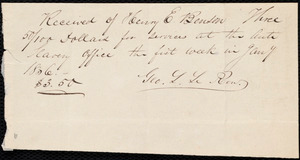 Received of Henry E Benson Three
50/100 Dollars for services at the Anti
Slavery Office the first week in Jany
1836.
$3.50
Geo. S.